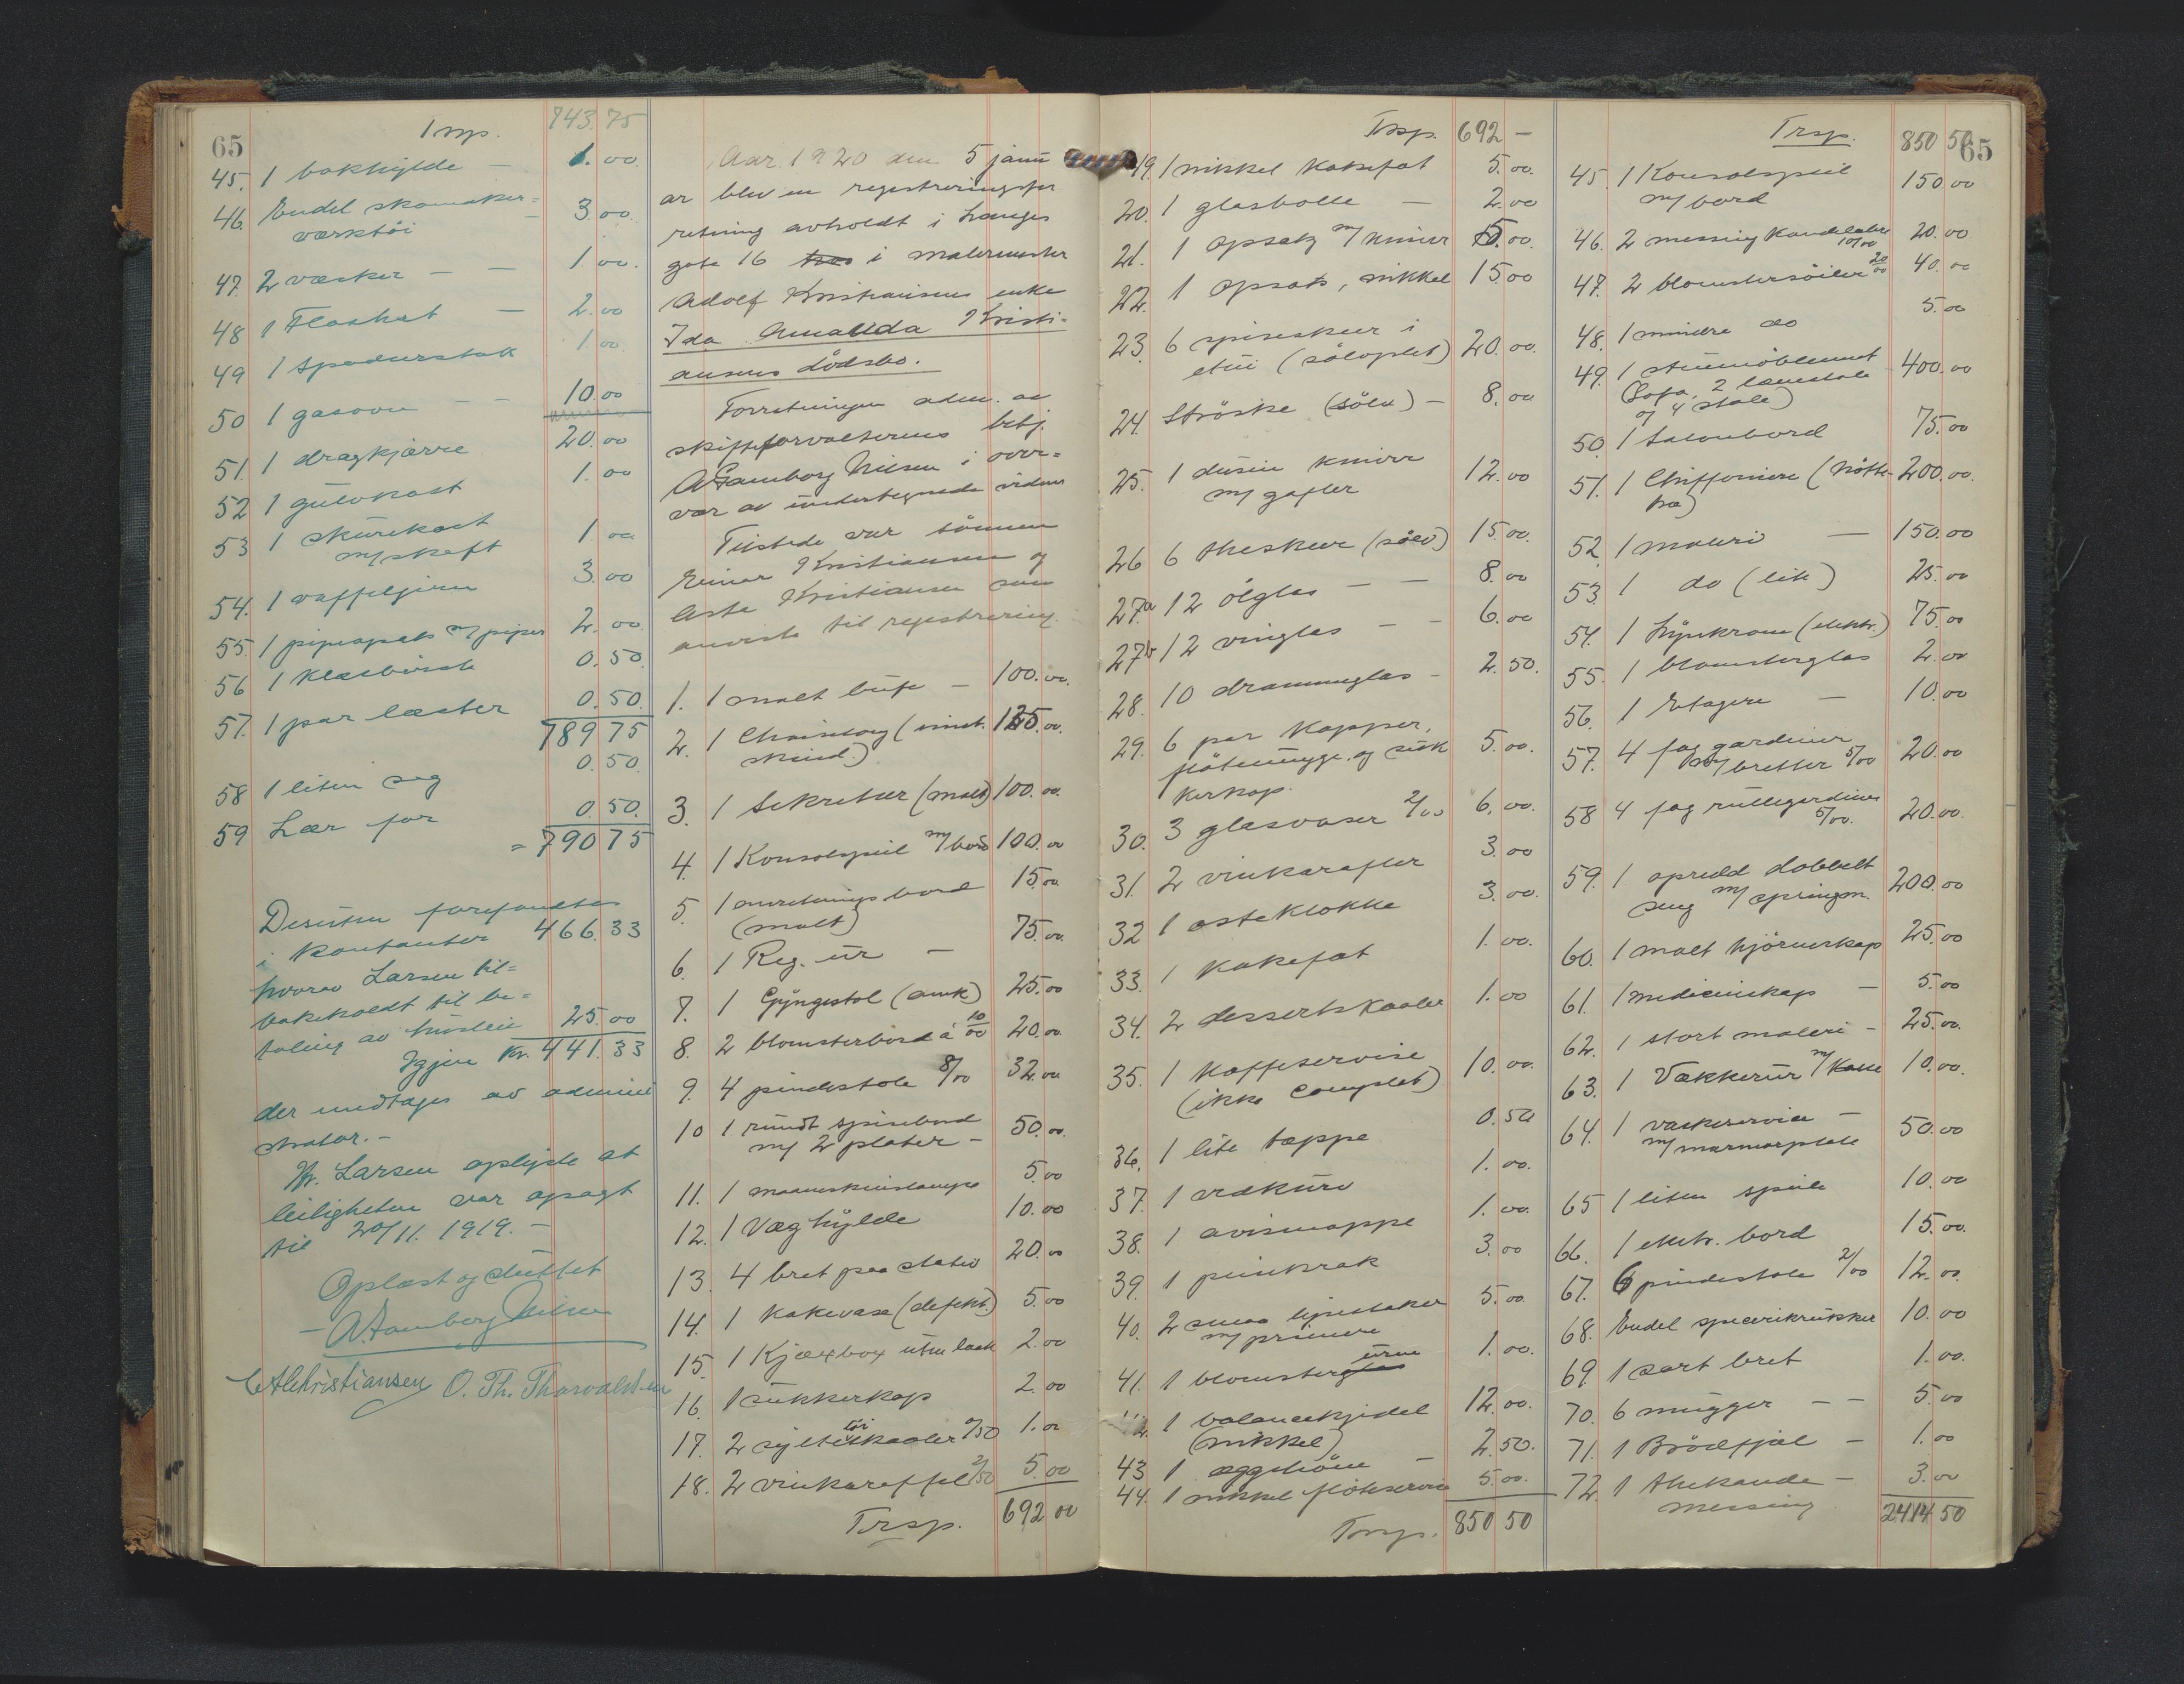 65
Trsp. 743.75
45. 1 bokhylde — 1.00
46. Endel skomaker=
værktöi — 3.00
47. 2 væsker — — 1.00
48 1 Floshat — 2.00
49 1 spaderstok 1.00
50 1 gasovn — — 10.00
51. 1 dragkjærre 20.00
52 1 gulvkost 1.00
53 1 skurekost
m/ skaft 1.00
54. 1 vaffeljern 3.00
55. 1 pipeopsats m/ piper 2.00
56 1 klæsbörste 0.50
57. 1 par læster 0.50
789 75
58 1 liten sag 0.50
59 Lær for 0.50
= 790 75
Desuten forefandtes
i kontanter 466.33
hvorav Larsen til=
bakeholdt til be=
taling av husleie 25.00
Igjen Kr. 441.33
der mottages av admini
strator. -
Hr. Larsen oplyste at
leiligheten var opsagt
til 20/11. 1919. -
Oplæst og sluttet
A. Hamborg Nilsen
E A Christiansen O. Th. Thorvaldsen
Aar 1920 den 5 janu
ar blev en registreringsfor
retning avholdt i Langes
gate 16 hos i malermester
Adolf Kristiansens enke
Ida Amanda Kristi-
ansens dödsbo.
Forretningen adm. av
skifteforvalterens betj.
A Hamborg Nilsen i over=
vær av undertegnede vidner
Tilstede var sönnen
Einar Kristiansen og
Asta Kristiansen som
anviste til registrering.
1. 1 malt bufe — 100.00
2. 1 Chaiselong (imit.
skind.) 125.00
3. 1 Sekretær (malt) 100.00
4. 1 Konsolspeil m/ bord 100.00
5. 1 anretningsbord
(malt) 15.00
6. 1 Reg. ur — 75.00
7. 1 Gyngestol (amk) 25.00
8. 2 blomsterbord à 10/00 20.00
9. 4 pindestole 8/00 32.00
10 1 rundt spisebord
m/ 2 plater — 50.00
11. 1 maaneskinslampe 5.00
12. 1 Væghylde 10.00
13. 4 bret paa stativ 20.00
14. 1 kakevase (defekt.) 5.00
15. 1 Kjæxbox uten laak 2.00
16. 1 sukkerkop 2.00
17. 2 syltetöiskaaler 0/50 1.00
18. 2 vinkarafler 2/50 5.00
Trsp. 692 00
Trsp. 692 —
19. 1 nikkel kakefat 5.00
20. 1 glasbolle — 2.00
21. 1 opsats m/ kniver 5.00
22. 1 opsats, nikkel 15.00
23. 6 spiseskeer i
etui (sölvplet) 20.00
24. Ströske (sölv) — 8.00
25. 1 dusin kniver
m/ gafler 12.00
26 6 theskeer (sölv) 15.00
27a 12 ölglas — — 8.00
27b 12 vinglas — — 6.00
28. 10 drammeglas — 2.50
29. 6 par kopper,
flötemugge og suk
kerkop. 5.00
30. 3 glasvaser 2/00 6.00
31. 2 vinkarafler 3.00
32 1 osteklokke 3.00
33. 1 kakefat 1.00
34. 2 dessertskaaler 1.00
35. 1 kaffeservise
(ikke complet) 10.00
36. 1 lite teppe 0.50
37. 1 vedkurv 1.00
38. 1 avismappe 1.00
39. 1 peiskrak 3.00
40. 2 smaa lysestaker
m/ prismer 5.00
41. 1 blomsterglas urne 1.00
1 balancekjedel
(nikkel) 12.00
43 1 eggeköne — 2.50
44. 1 nikkel flöteservise 5.00
Trsp. 850 50
Trsp. 850 50
65
45. 1 Konsolspeil
m/ bord 150.00
46. 2 messing kandelabre 10/00 20.00
47. 2 blomstersöiler 20/00 40.00
48. 1 mindre do 5.00
49. 1 stuemöblement
(Sofa, 2 lænestole
og 4 stole) 400.00
50. 1 Salonbord 75.00
51. 1 Chiffoniere (nötte-
træ) 200.00
52. 1 maleri — 150.00
53. 1 do (lite) 25.00
54. 1 Lysekrone (elektr.) 75.00
55. 1 blomsterglas 2.00
56. 1 Etagere — 10.00
57. 4 fag gardiner
m/ bretter 5/00 20.00
58 4 fag rullegardiner
5/00. 20.00
59. 1 opredd dobbelt
seng m/ springm. 200.00
60. 1 malt hjörneskap 25.00
61. 1 medicinskap — 5.00
62. 1 stort maleri — 25.00
63. 1 Vækkerur m/ kasse 10.00
64. 1 vaskeservise —
m/ marmorplate 50.00
65 1 liten speile 10.00
66. 1 elektr. bord 15.00
67. 6 pindestole 2/00 12.00
68. Endel specerikrukker 10.00
69. 1 sort bret 1.00
70. 6 mugger — — 5.00
71. 1 Brödfjæl — 1.00
72. 1 thekande —
messing 3.00
2414 50